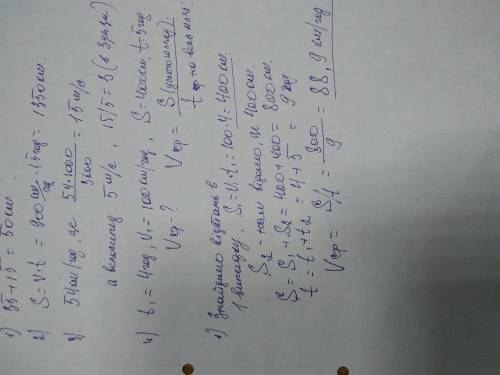 1) 35+15 = 50 км.
2) S = V·t = 900 км/год · 1,5 год = 1350 км.
3) 54 км/год, це 54·1000/3600 = 15 м/с
а велосипед. 5 м/с, 15/5 = 3 (в 3 рази).
4) t₁ = 4 год, V₁ = 100 км/год, S = 400 км. t = 5 год.
Vср - ?
Vср = S (усього шляху) / t
1) Знайдемо відстань в
1 випадку, S₁ = V₁·t₁ = 100·4 = 400 км.
S₂ - нам відомо, це 400 км.
S = S₁ + S₂ = 400+400 = 800 км.
t = t₁ + t₂ = 4 + 5 = 9 год.
Vср = S/t = 800/9 = 88,9 км/год